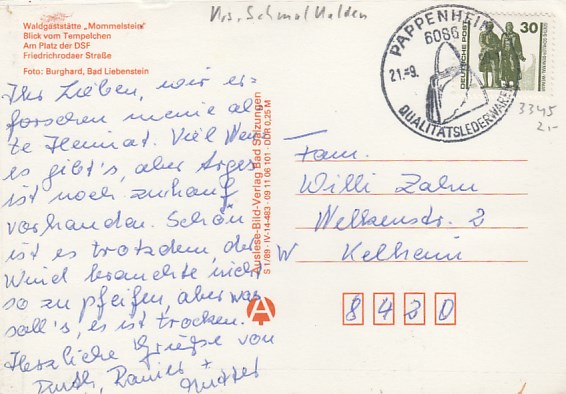 Krs. Schmalkalden
Waldgaststätte „Mommelstein"
Blick vom Tempelchen
Am Platz der DSF
Friedrichrodaer Straße
Foto: Burghard, Bad Liebenstein
Ihr Lieben, wir er-
forschen meine al-
te Heimat. Viel Neues
es gibt's, aber Arges
ist noch zuhauf
vorhanden. Schön
ist es trotzdem, der
Wind brauchte nicht
so zu pfeifen, aber was
soll's, es ist trocken.
Herzliche Grüße von
Ruth, Rainer +
Mutter
Auslese-Bild-Verlag Bad Salzungen
S 1/89 · IV-14-483 · 09 11 06 101 · DDR 0,25 M
A
PAPPENHEIM
6086
21.-9.
QUALITÄTSLEDERWAREN
DEUTSCHE POST
30
3345
2,-
Fam.
Willi Zahn
Welkenstr. 2
W Kelheim
8420